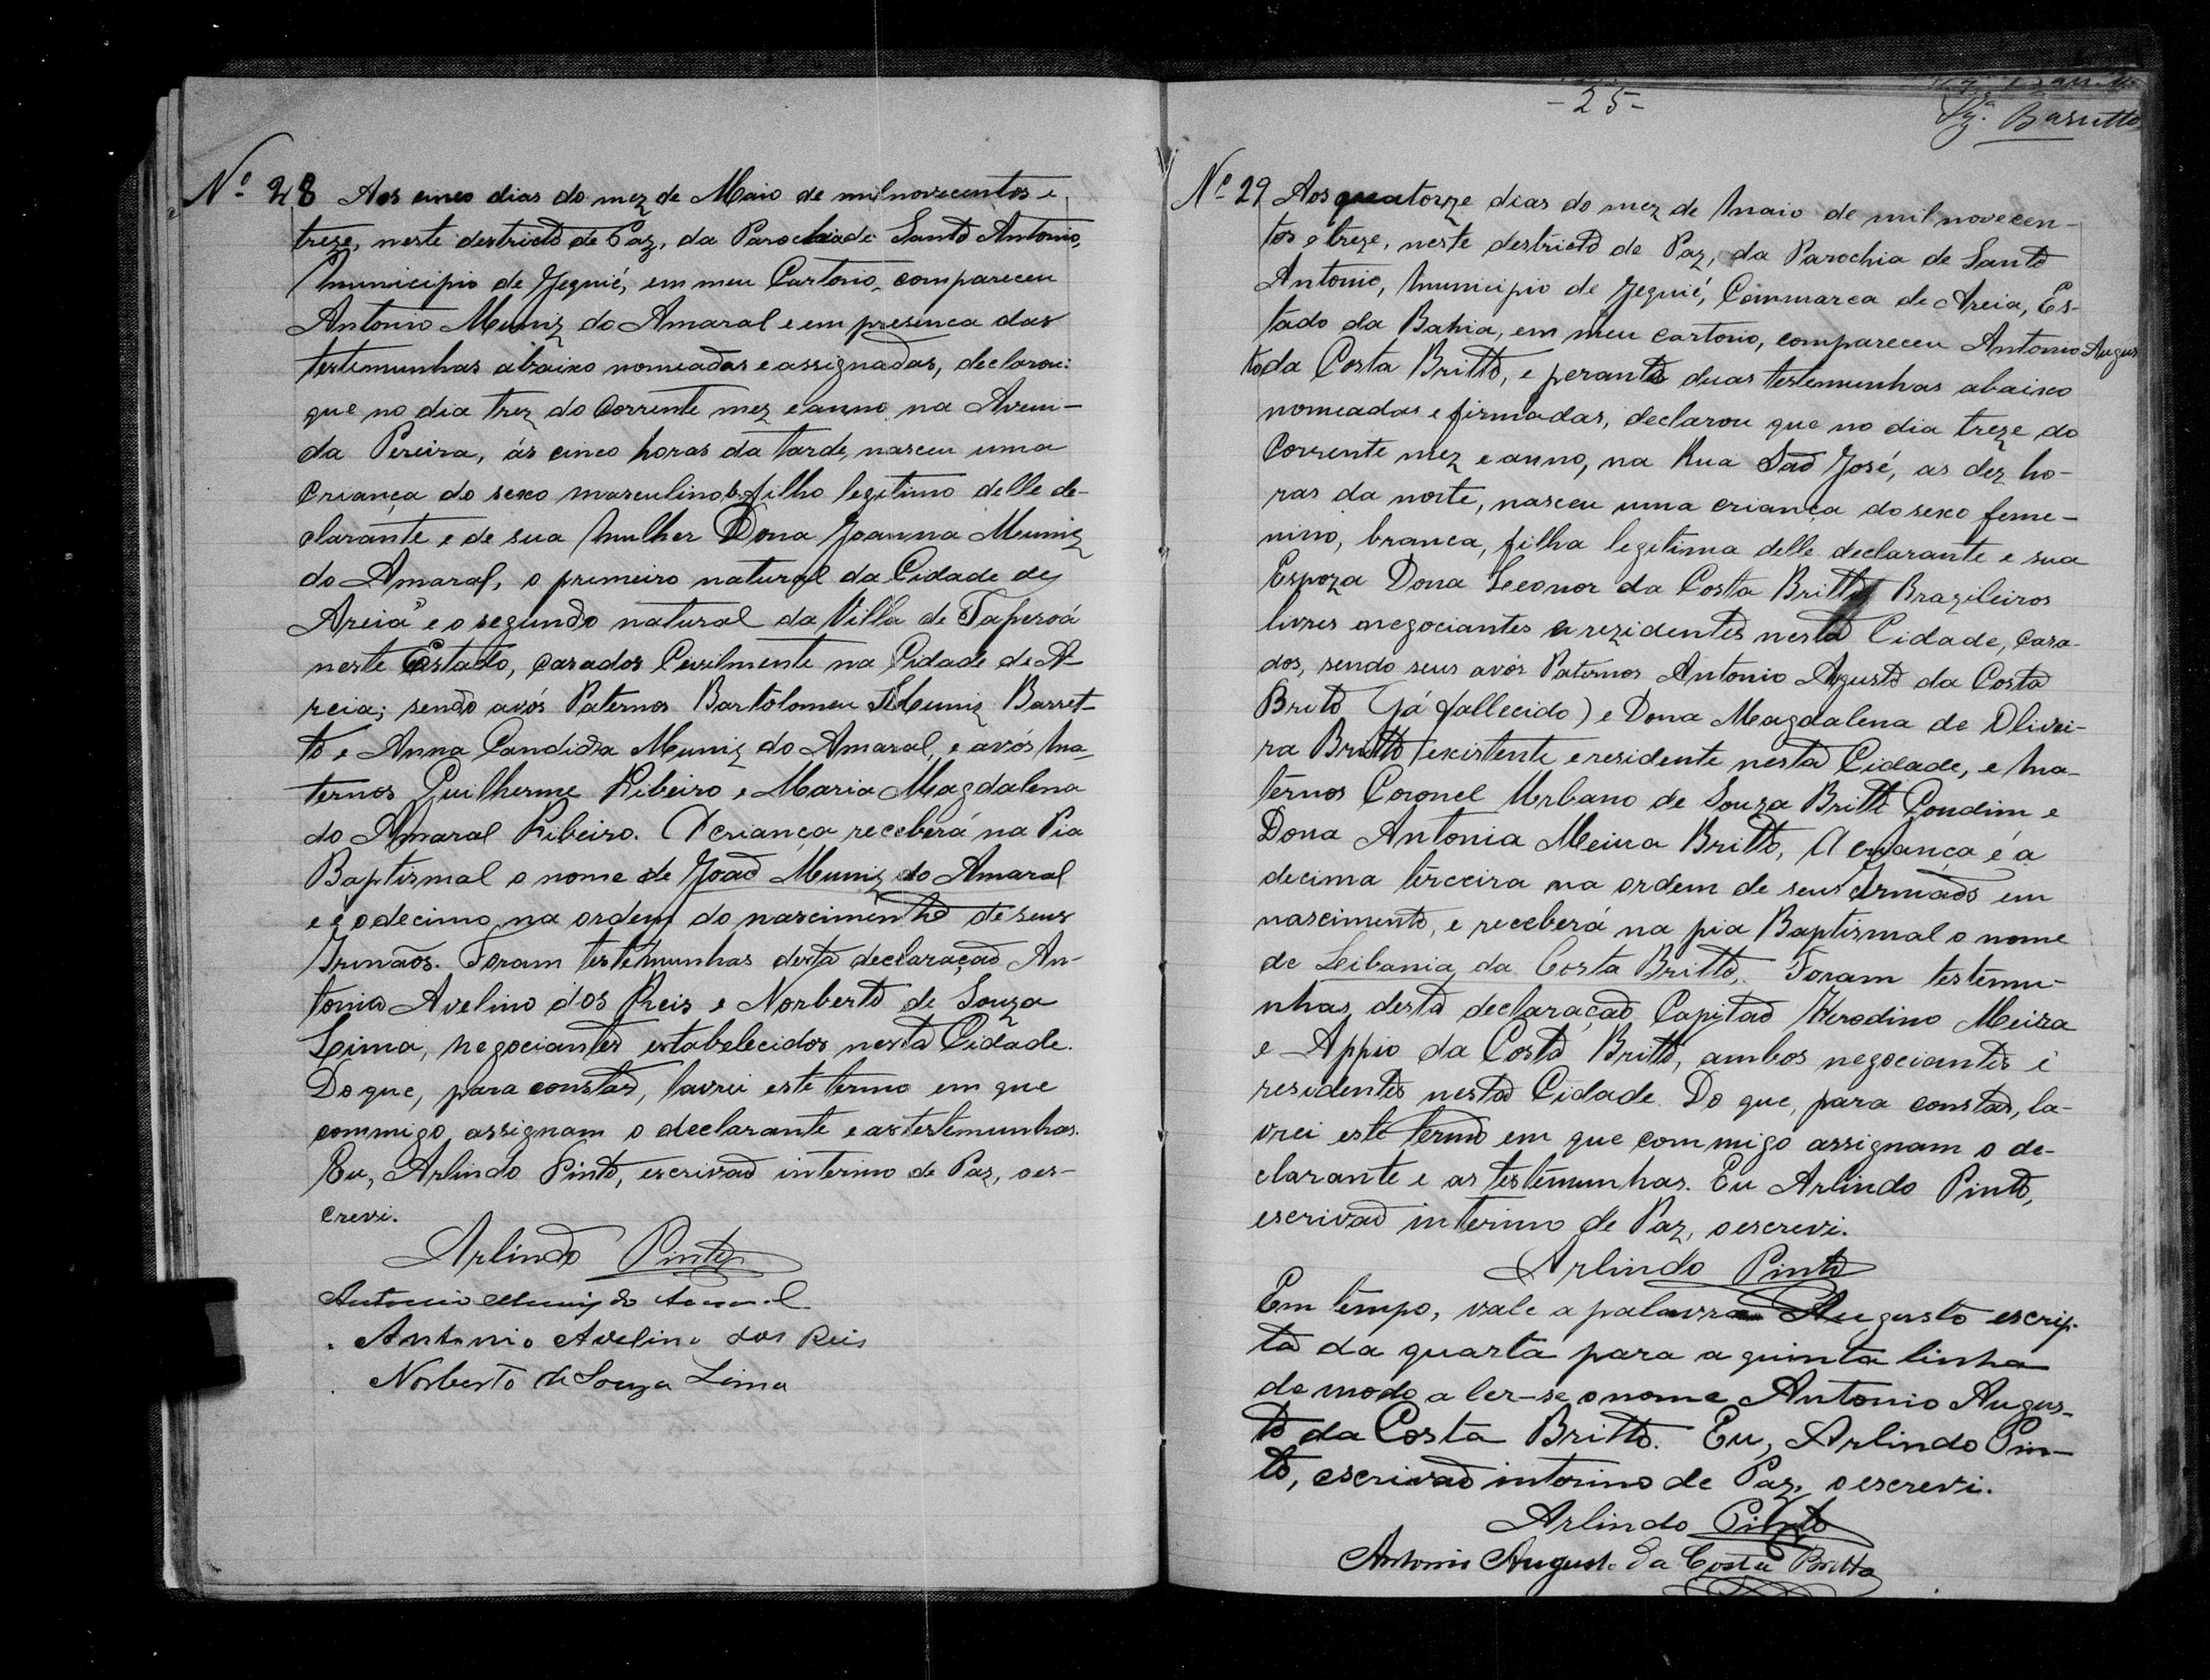 Nº 28 Aos cinco dias do mez de Maio de mil novecentos e
treze, neste destricto de Paz, da Parochia de Santo Antonio,
Municipio de Jequié, em meu Cartorio, compareceu
Antonio Muniz do Amaral e em presenca das
testemunhas abaixo nomeadas e assignadas, declarou:
que no dia trez do corrente mez e anno na Aveni-
da Pereira, ás cinco horas da tarde, nasceu uma
criança do sexo masculino filho legitimo delle de-
clarante e de sua Mulher Dona Joanna Muniz
do Amaral, o primeiro natural da Cidade de
Areia e o segundo natural da Villa de Taperoá
neste Estado, casados Civilmente na Cidade de A-
reia; sendo avós Paternos Bartolomeu Muniz Barret-
to e Anna Candida Muniz do Amaral, e avós Ma-
ternos Guilherme Ribeiro e Maria Magdalena
do Amaral Ribeiro. A criança receberá na Pia
Baptismal o nome de João Muniz do Amaral
e é o decimo na ordem do nascimento de seus
Irmãos. Foram testemunhas desta declaração An-
tonio Avelino dos Reis e Norberto de Souza
Lima, negociantes estabelecidos nesta Cidade.
Do que, para constar, lavrei este termo em que
commigo assignam o declarante e as testemunhas.
Eu, Arlindo Pinto, escrivão interino de Paz, o es-
crevi.
Arlindo Pinto
Antonio Muniz do Amaral
Antonio Avelino dos Reis
Norberto de Souza Lima
- 25 -
Nº 29 Aos quatorze dias do mez de Maio de mil novecen-
tos e treze, neste destricto de Paz, da Parochia de Santo
Antonio, Municipio de Jequié, Commarca de Areia, Es-
tado da Bahia, em meu cartorio, compareceu Antonio Augus
to da Costa Britto, e perante duas testemunhas abaixo
nomeadas e firmadas, declarou que no dia treze do
corrente mez e anno, na Rua São José, as dez ho-
ras da noite, nasceu uma criança do sexo feme-
nino, branca, filha legitima delle declarante e sua
Espoza Dona Leonor da Costa Britto Brazileiros
livres negociantes e rezidentes nesta Cidade, casa-
dos, sendo seus avós Paternos Antonio Agusto da Costa
Brito (já fallecido) e Dona Magdalena de Olivei-
ra Britto existente e residente nesta Cidade, e Ma-
ternos Coronel Urbano de Souza Britto Gondim e
Dona Antonia Meira Britto, A criança é a
decima terceira na ordem de seus Irmãos em
nascimento, e receberá na pia Baptismal o nome
de Leibania da Costa Britto. Foram testemu-
nhas desta declaração Capitão Herodino Meira
e Appio da Costa Britto, ambos negociantes e
residentes nesta Cidade. Do que, para constar, la-
vrei este termo em que commigo assignam o de-
clarante e as testemunhas. Eu Arlindo Pinto,
escrivão interino de Paz, o escrevi.
Arlindo Pinto
Em tempo, vale a palavra Augusto escrip-
ta da quarta para a quinta linha
de modo a ler-se o nome Antonio Augus-
to da Costa Britto. Eu, Arlindo Pin-
to, escrivão interino de Paz, o escrevi.
Arlindo Pinto
Antonio Augusto da Costa Britto